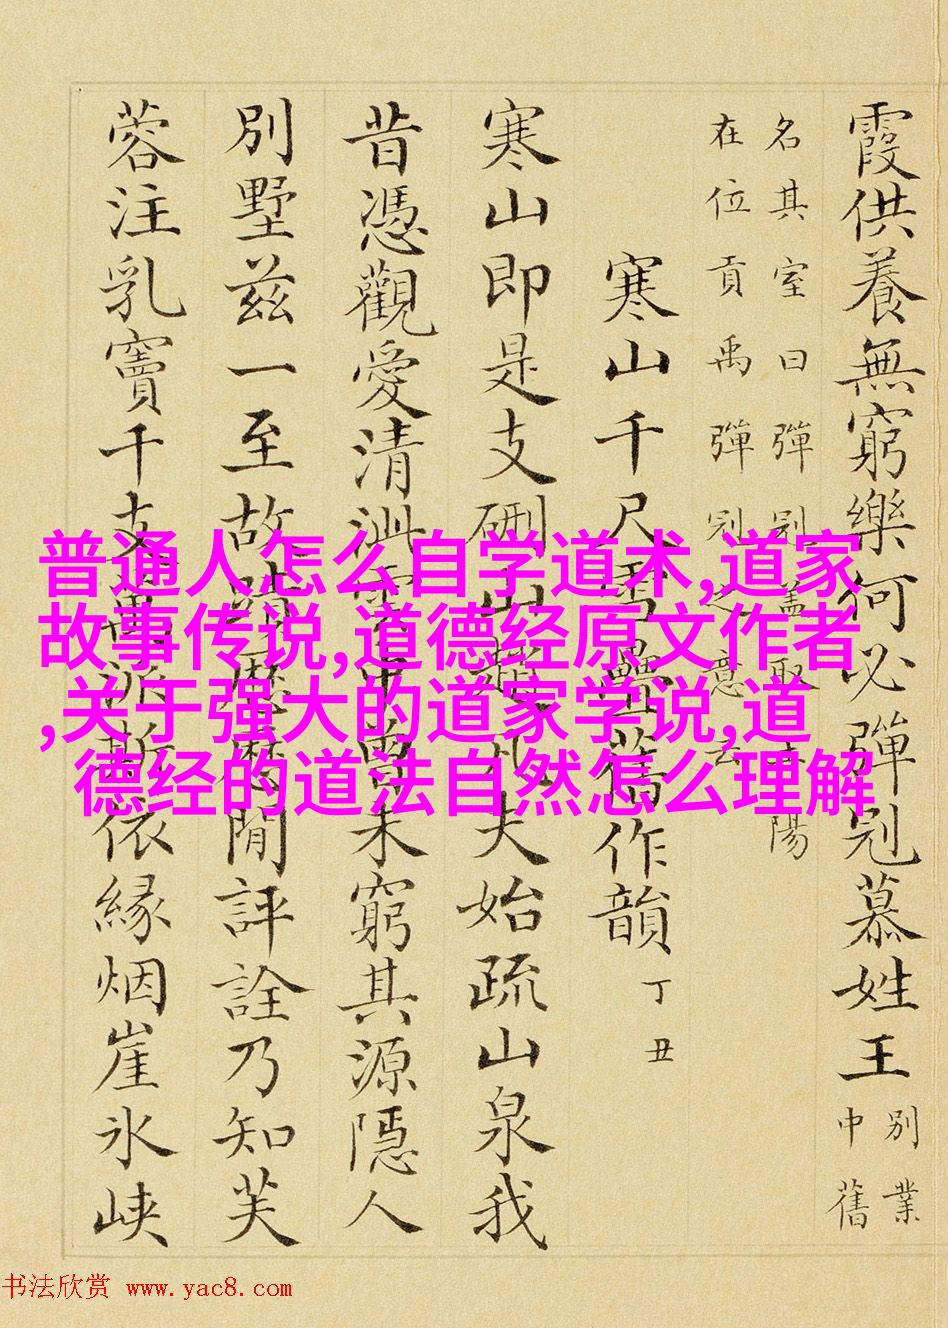 霞供養無窮樂何必彈冠慕姓王別業
中舊
名其室曰彈冠蓋取王陽
在位貢禹彈冠之意云
寒山千尺雪疊舊作韻丁丑
寒山即是支硎山鑿凡夫始疏山泉我
昔憑觀愛清泚當未窮其源隱人
別墅茲一至故蹟歷歷閒評詮乃知芙
蓉注乳竇千支萬派斯依緣烟崖氷峽
普通人怎么自学道术,道家
故事传说,道德经原文作者
,关于强大的道家学说,道
德经的道法自然怎么理解
书法欣赏 www.yac8.com